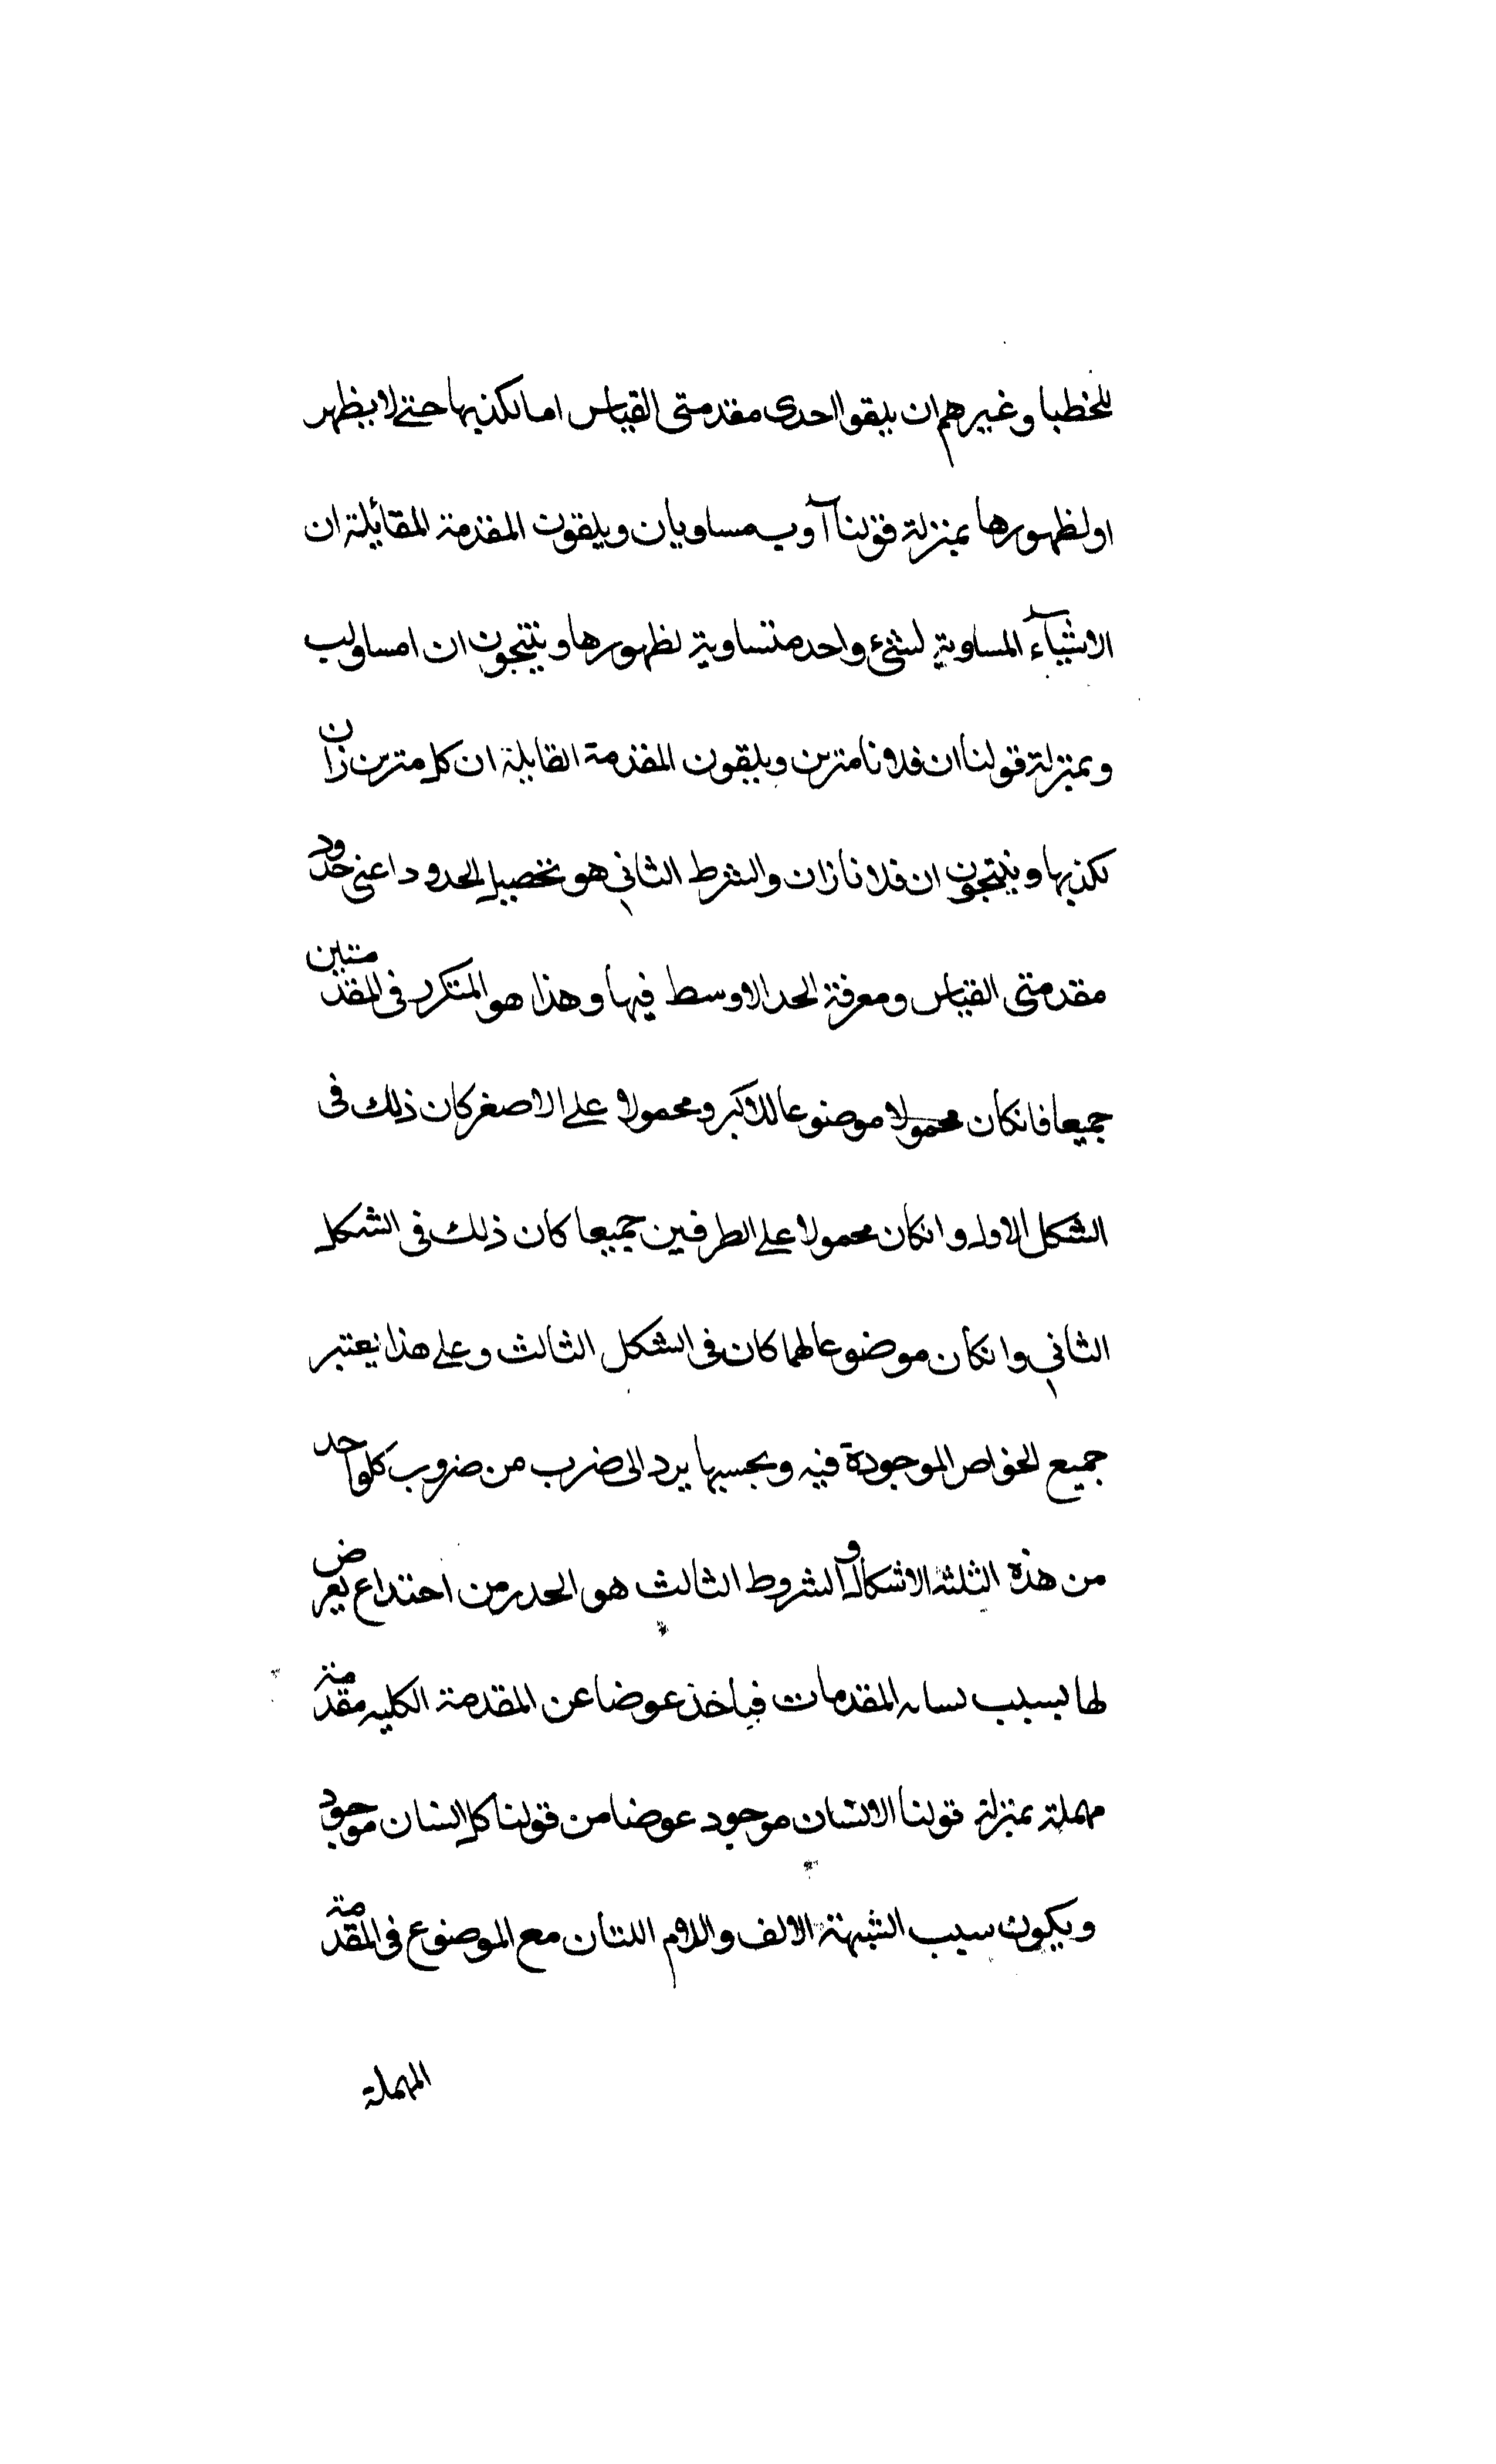 للخطبا وغيرهم ان يبقوا احدى مقدمتى القياس اما لكذبها حتى لا يظهر
او لظهورها بمنزلة قولنا آ وب مساويان ويلقون المقدمة القائلة ان
الاشيآء المساوية لشئ واحد متساوية لظهورها وينتجون ان ا مساو لب
وبمنزلة قولنا ان فلانا متزين ويلقون المقدمة القايلة ان كل متزين زان
لكذبها وينتجون ان فلانا زان والشرط الثاني هو تحصيل الحدود اعنى حدود
مقدمتى القياس ومعرفة الحد الاوسط فيها وهذا هو المتكرر فى المقدمتين
جميعا فانكان محمولا موضوعا للاكبر ومحمولا على الاصغر كان ذلك فى
الشكل الاول وانكان محمولا على الطرفين جميعا كان ذلك فى الشكل
الثاني وانكان موضوعا لهما كان فى الشكل الثالث وعلى هذا يعتبر
جميع الخواص الموجودة فيه وبحسبها يرد الى ضرب من ضروب كلواحد
من هذه الثلثة الاشكال والشروط الثالث هو الحدر من اختداع يعرض
لها بسبب المقدمات فياخذ عوضا عن المقدمة الكليه مقدمة
مهملة بمنزلة قولنا الانسان موجود عوضا من قولنا كل انسان موجود
ويكون سبب الشبهة الالف واللام اللتان مع الموضوع فى المقدمة
المهملة